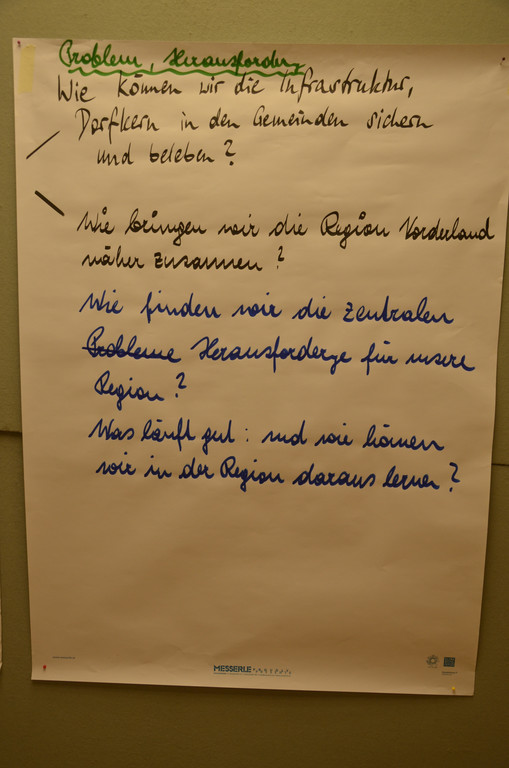 Problem, Herausforderg
Wie können wir die Infrastruktur,
Dorfkern in den Gemeinden sichern
und beleben?
Wie bringen wir die Region Vorderland
näher zusammen?
Wie finden wir die zentralen
Probleme Herausforderge für unsere
Region?
Was läuft gut: und wie können
wir in der Region daraus lernen?
MESSERLE